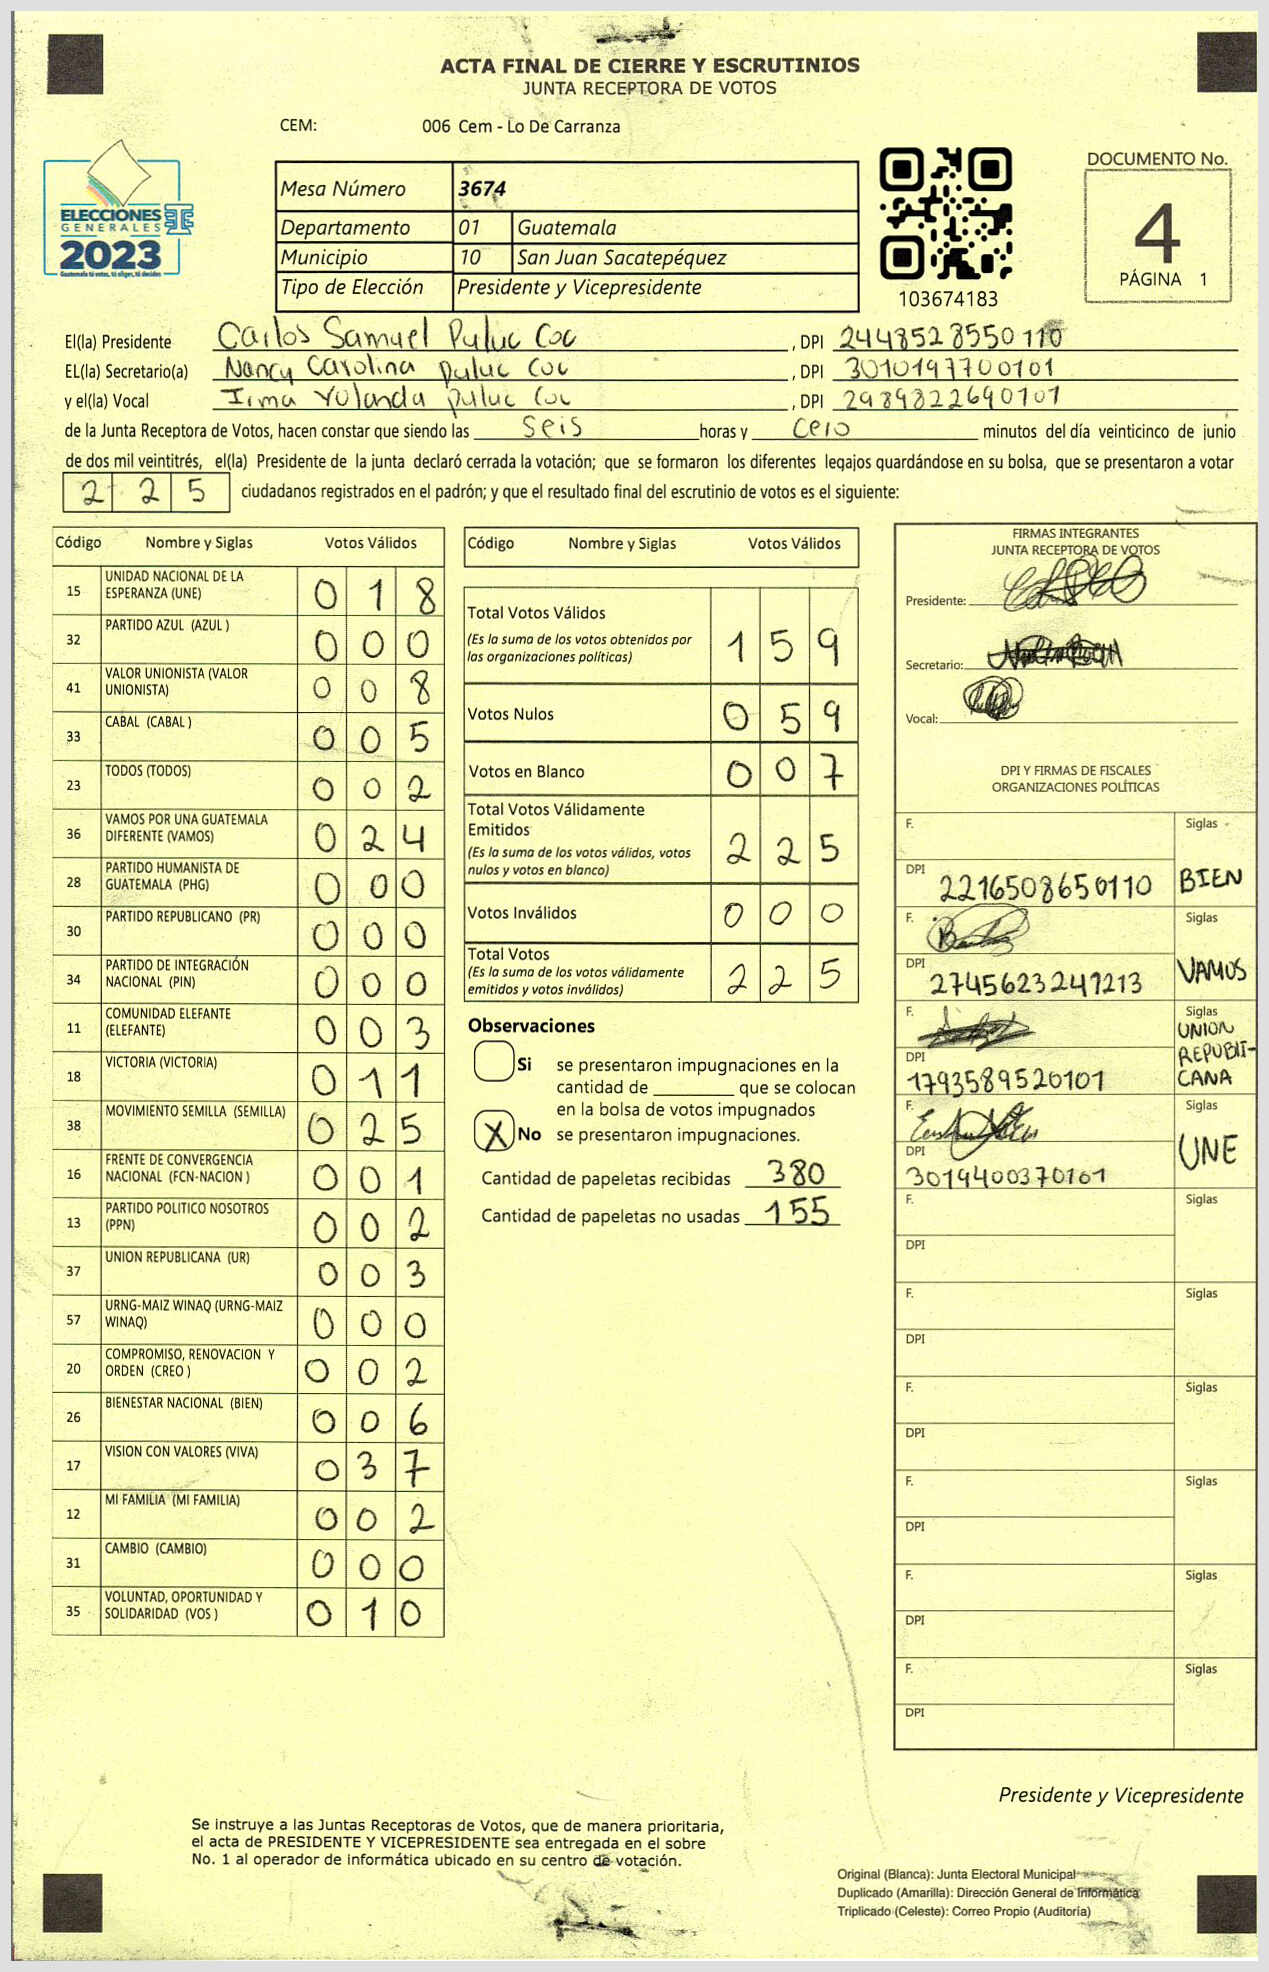 ACTA FINAL DE CIERRE Y ESCRUTINIOS
JUNTA RECEPTORA DE VOTOS
CEM: 006 Cem - Lo De Carranza
ELECCIONES
GENERALES
2023
Guatemala tú votas, tú eliges, tú decides
Mesa Número 3674
Departamento 01 Guatemala
Municipio 10 San Juan Sacatepéquez
Tipo de Elección Presidente y Vicepresidente
103674183
DOCUMENTO No.
4
PÁGINA 1
El(la) Presidente Carlos Samuel Puluc Coc, DPI 2448528550110
EL(la) Secretario(a) Nancy Carolina puluc Coc, DPI 3010197700101
y el(la) Vocal Irma Yolanda puluc Coc, DPI 2989822690101
de la Junta Receptora de Votos, hacen constar que siendo las seis horas y cero minutos del día veinticinco de junio
de dos mil veintitrés, el(la) Presidente de la junta declaró cerrada la votación; que se formaron los diferentes legajos guardándose en su bolsa, que se presentaron a votar
225 ciudadanos registrados en el padrón; y que el resultado final del escrutinio de votos es el siguiente:
Código Nombre y Siglas Votos Válidos
15 UNIDAD NACIONAL DE LA
ESPERANZA (UNE) 0 1 8
32 PARTIDO AZUL (AZUL ) 0 0 0
41 VALOR UNIONISTA (VALOR
UNIONISTA) 0 0 8
33 CABAL (CABAL ) 0 0 5
23 TODOS (TODOS) 0 0 2
36 VAMOS POR UNA GUATEMALA
DIFERENTE (VAMOS) 0 2 4
28 PARTIDO HUMANISTA DE
GUATEMALA (PHG) 0 0 0
30 PARTIDO REPUBLICANO (PR) 0 0 0
34 PARTIDO DE INTEGRACIÓN
NACIONAL (PIN) 0 0 0
11 COMUNIDAD ELEFANTE
(ELEFANTE) 0 0 3
18 VICTORIA (VICTORIA) 0 1 1
38 MOVIMIENTO SEMILLA (SEMILLA) 0 2 5
16 FRENTE DE CONVERGENCIA
NACIONAL (FCN-NACION ) 0 0 1
13 PARTIDO POLITICO NOSOTROS
(PPN) 0 0 2
37 UNION REPUBLICANA (UR) 0 0 3
57 URNG-MAIZ WINAQ (URNG-MAIZ
WINAQ) 0 0 0
20 COMPROMISO, RENOVACION Y
ORDEN (CREO ) 0 0 2
26 BIENESTAR NACIONAL (BIEN) 0 0 6
17 VISION CON VALORES (VIVA) 0 3 7
12 MI FAMILIA (MI FAMILIA) 0 0 2
31 CAMBIO (CAMBIO) 0 0 0
35 VOLUNTAD, OPORTUNIDAD Y
SOLIDARIDAD (VOS ) 0 1 0
Código Nombre y Siglas Votos Válidos
Total Votos Válidos
(Es la suma de los votos obtenidos por
las organizaciones políticas) 1 5 9
Votos Nulos 0 5 9
Votos en Blanco 0 0 7
Total Votos Válidamente
Emitidos
(Es la suma de los votos válidos, votos
nulos y votos en blanco) 2 2 5
Votos Inválidos 0 0 0
Total Votos
(Es la suma de los votos válidamente
emitidos y votos inválidos) 2 2 5
Observaciones
Si se presentaron impugnaciones en la
cantidad de ________ que se colocan
en la bolsa de votos impugnados
X No se presentaron impugnaciones.
Cantidad de papeletas recibidas 380
Cantidad de papeletas no usadas 155
FIRMAS INTEGRANTES
JUNTA RECEPTORA DE VOTOS
Presidente:
Secretario:
Vocal:
DPI Y FIRMAS DE FISCALES
ORGANIZACIONES POLÍTICAS
F. Siglas
DPI 2216508650110 BIEN
F. Siglas
DPI 2745623241213 VAMOS
F. Siglas
UNION
REPUBLI-
DPI 1793589520101 CANA
F. Siglas
DPI 3019400370101 UNE
F. Siglas
DPI
F. Siglas
DPI
F. Siglas
DPI
F. Siglas
DPI
F. Siglas
DPI
F. Siglas
DPI
Presidente y Vicepresidente
Se instruye a las Juntas Receptoras de Votos, que de manera prioritaria,
el acta de PRESIDENTE Y VICEPRESIDENTE sea entregada en el sobre
No. 1 al operador de informática ubicado en su centro de votación.
Original (Blanca): Junta Electoral Municipal
Duplicado (Amarilla): Dirección General de Informática
Triplicado (Celeste): Correo Propio (Auditoría)